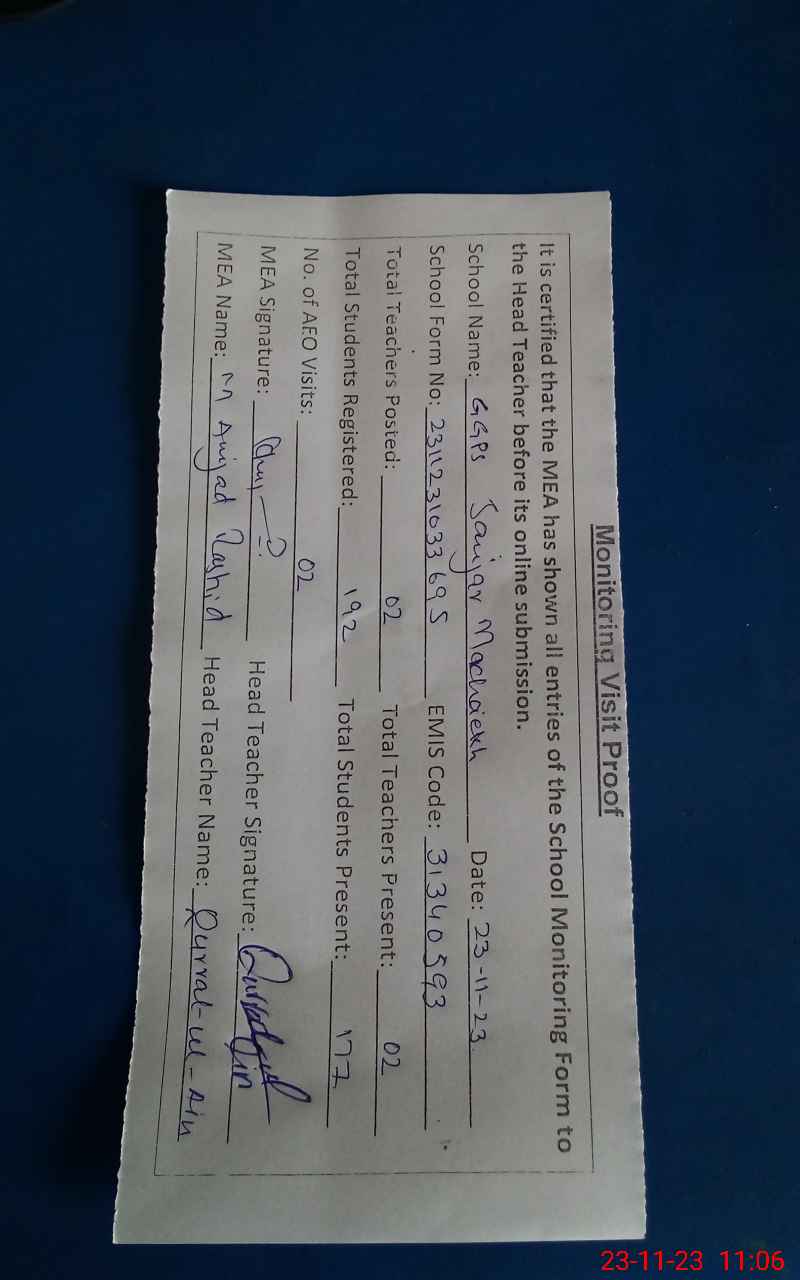 Monitoring Visit Proof
It is certified that the MEA has shown all entries of the School Monitoring Form to
the Head Teacher before its online submission.
School Name: GGPS Sanjar Date: 23-11-23
School Form No: EMIS Code: 31340593
Total Teachers Posted: 02 Total Teachers Present: 02
Total Students Registered: 192 Total Students Present: 177
No. of AEO Visits: 02
MEA Signature: Head Teacher Signature: Qurratul Ain
MEA Name: M Amjad Rashid Head Teacher Name: Qurrat-ul-Ain
23-11-23 11:06